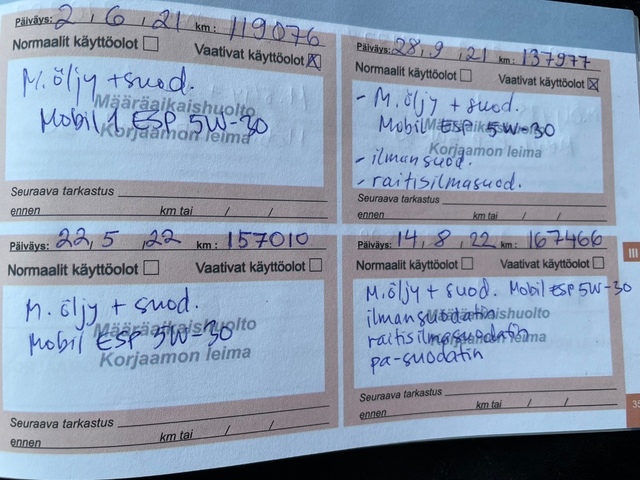 Päiväys: 2, 6, 21 km: 119076
Normaalit käyttöolot Vaativat käyttöolot X
M. öljy + suod.
Mobil 1 ESP 5W-30
Määräaikaishuolto
Korjaamon leima
Seuraava tarkastus
ennen km tai / /
Päiväys: 28, 9, 21 km: 137977
Normaalit käyttöolot Vaativat käyttöolot X
- M. öljy + suod.
Mobil ESP 5W-30
- ilmansuod.
- raitisilmasuod.
Määräaikaishuolto
Korjaamon leima
Seuraava tarkastus
ennen km tai / /
Päiväys: 22, 5, 22 km: 157010
Normaalit käyttöolot Vaativat käyttöolot
M. öljy + suod.
Mobil ESP 5W-30
Määräaikaishuolto
Korjaamon leima
Seuraava tarkastus
ennen km tai / /
Päiväys: 14, 8, 22 km: 167466
Normaalit käyttöolot Vaativat käyttöolot
M. öljy + suod. Mobil ESP 5W-30
ilmansuodatin
raitisilmasuodatin
pa-suodatin
Määräaikaishuolto
Korjaamon leima
Seuraava tarkastus
ennen km tai / /
III